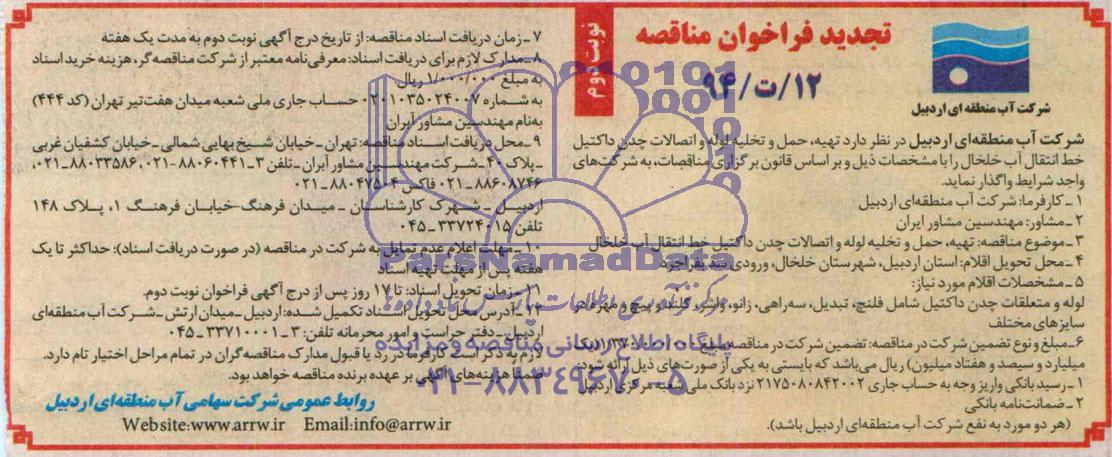 تجدید فراخوان مناقصه
۱۲/ت/۹۴
نوبت دوم
شرکت آب منطقه ای اردبیل
شرکت آب منطقه‌ای اردبیل در نظر دارد تهیه، حمل و تخلیه لوله و اتصالات چدن داکتیل
خط انتقال آب خلخال را با مشخصات ذیل و بر اساس قانون برگزاری مناقصات، به شرکت‌های
واجد شرایط واگذار نماید.
۱ـ کارفرما: شرکت آب منطقه‌ای اردبیل
۲ـ مشاور: مهندسین مشاور ایران
۳ـ موضوع مناقصه: تهیه، حمل و تخلیه لوله و اتصالات چدن داکتیل خط انتقال آب خلخال
۴ـ محل تحویل اقلام: استان اردبیل، شهرستان خلخال، ورودی سد
۵ ـ مشخصات اقلام مورد نیاز:
لوله و متعلقات چدن داکتیل شامل فلنج، تبدیل، سه‌راهی، زانو، واشر، گلند و پیچ و مهره در
سایزهای مختلف
۶ـ مبلغ و نوع تضمین شرکت در مناقصه: تضمین شرکت در مناقصه مبلغ (یک
میلیارد و سیصد و هفتاد میلیون) ریال می‌باشد که بایستی به یکی از صورت‌های ذیل ارائه شود:
۱ـ رسید بانکی واریز وجه به حساب جاری ۲۱۷۵۰۸۰۸۴۲۰۰۲ نزد بانک ملی شعبه مرکزی اردبیل
۲ـ ضمانت‌نامه بانکی
(هر دو مورد به نفع شرکت آب منطقه‌ای اردبیل باشد).
۷ـ زمان دریافت اسناد مناقصه: از تاریخ درج آگهی نوبت دوم به مدت یک هفته
۸ـ مدارک لازم برای دریافت اسناد: معرفی‌نامه معتبر از شرکت مناقصه‌گر، هزینه خرید اسناد
به مبلغ ۱/۰۰۰/۰۰۰ ریال
به شماره ۰۲۰۱۰۳۵۰۲۴۰۰۷ حساب جاری ملی شعبه میدان هفت‌تیر تهران (کد ۴۴۴)
به‌نام مهندسین مشاور ایران
۹ـ محل دریافت اسناد مناقصه: تهران ـ خیابان شیخ بهایی شمالی ـ خیابان کشفیان غربی
ـ پلاک ۴۰ ـ شرکت مهندسین مشاور ایران ـ تلفن ۳ـ۸۸۰۶۰۴۴۱ـ۰۲۱، ۸۸۰۳۳۵۸۶ـ۰۲۱،
۸۸۶۰۸۷۴۶ـ۰۲۱ فاکس ۸۸۰۴۷۵۰۴ـ۰۲۱
اردبیل ـ شهرک کارشناسان ـ میدان فرهنگ ـ خیابان فرهنگ ۱، پلاک ۱۴۸
تلفن ۳۳۷۲۴۰۱۵ـ۰۴۵
۱۰ـ مهلت اعلام عدم تمایل به شرکت در مناقصه (در صورت دریافت اسناد): حداکثر تا یک
هفته پس از مهلت تهیه اسناد
۱۱ـ زمان تحویل اسناد: تا ۱۷ روز پس از درج آگهی فراخوان نوبت دوم.
۱۲ـ آدرس محل تحویل اسناد تکمیل شده: اردبیل ـ میدان ارتش ـ شرکت آب منطقه‌ای
اردبیل ـ دفتر حراست و امور محرمانه تلفن: ۳ـ۳۳۷۱۰۰۰۱ـ۰۴۵
لازم به ذکر است کارفرما در رد یا قبول مدارک مناقصه‌گران در تمام مراحل اختیار تام دارد.
ضمنا هزینه‌های آگهی بر عهده برنده مناقصه خواهد بود.
روابط عمومی شرکت سهامی آب منطقه‌ای اردبیل
Website:www.arrw.ir Email:info@arrw.ir
ParsNamadData
پایگاه اطلاع رسانی مناقصه و مزایده
۰۲۱-۸۸۳۴۹۶۷۰-۵